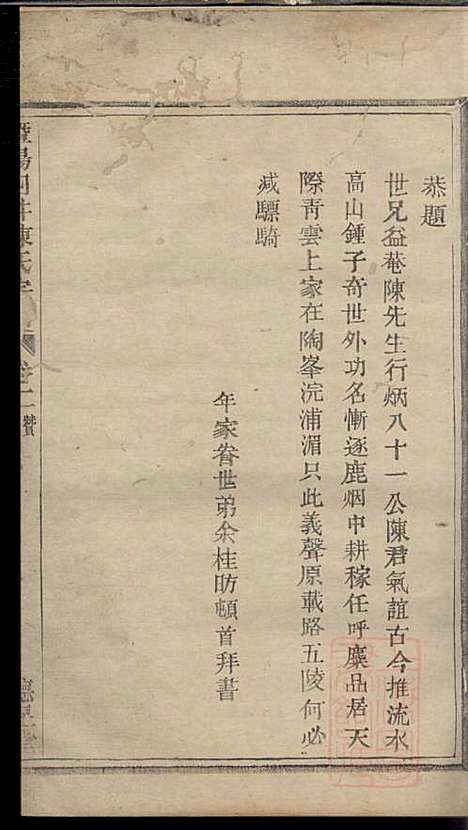 恭題
世兄益菴陳先生行炳八十一公陳君氣誼古今推流水
高山鍾子奇世外功名慚逐鹿烟中耕稼任呼麋品居天
際青雲上家在陶峯浣浦湄只此義聲原載路五陵何必
减驃騎
年家眷世弟余桂昉頓首拜書
暨陽
陳氏宗
卷二
贊